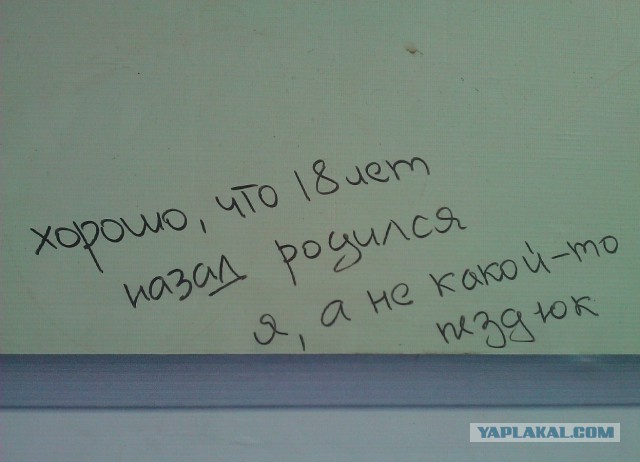 хорошо, что 18 лет
назад родился
я, а не какой-то
пездюк
YAPLAKAL.COM